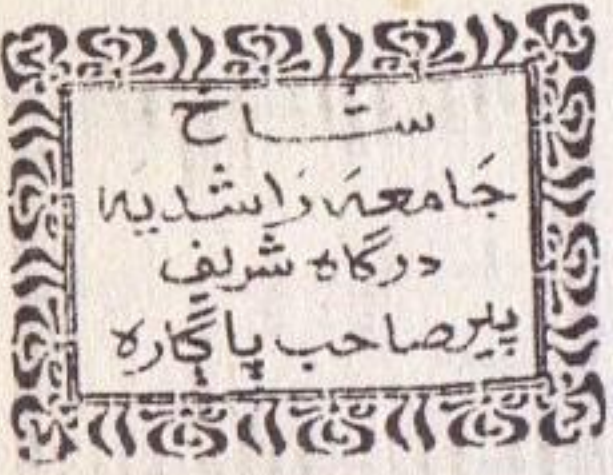 شاخ
جَامعہَ رَاشدیہَ
درگاہ شریف
پیر صاحب پاڳارہ